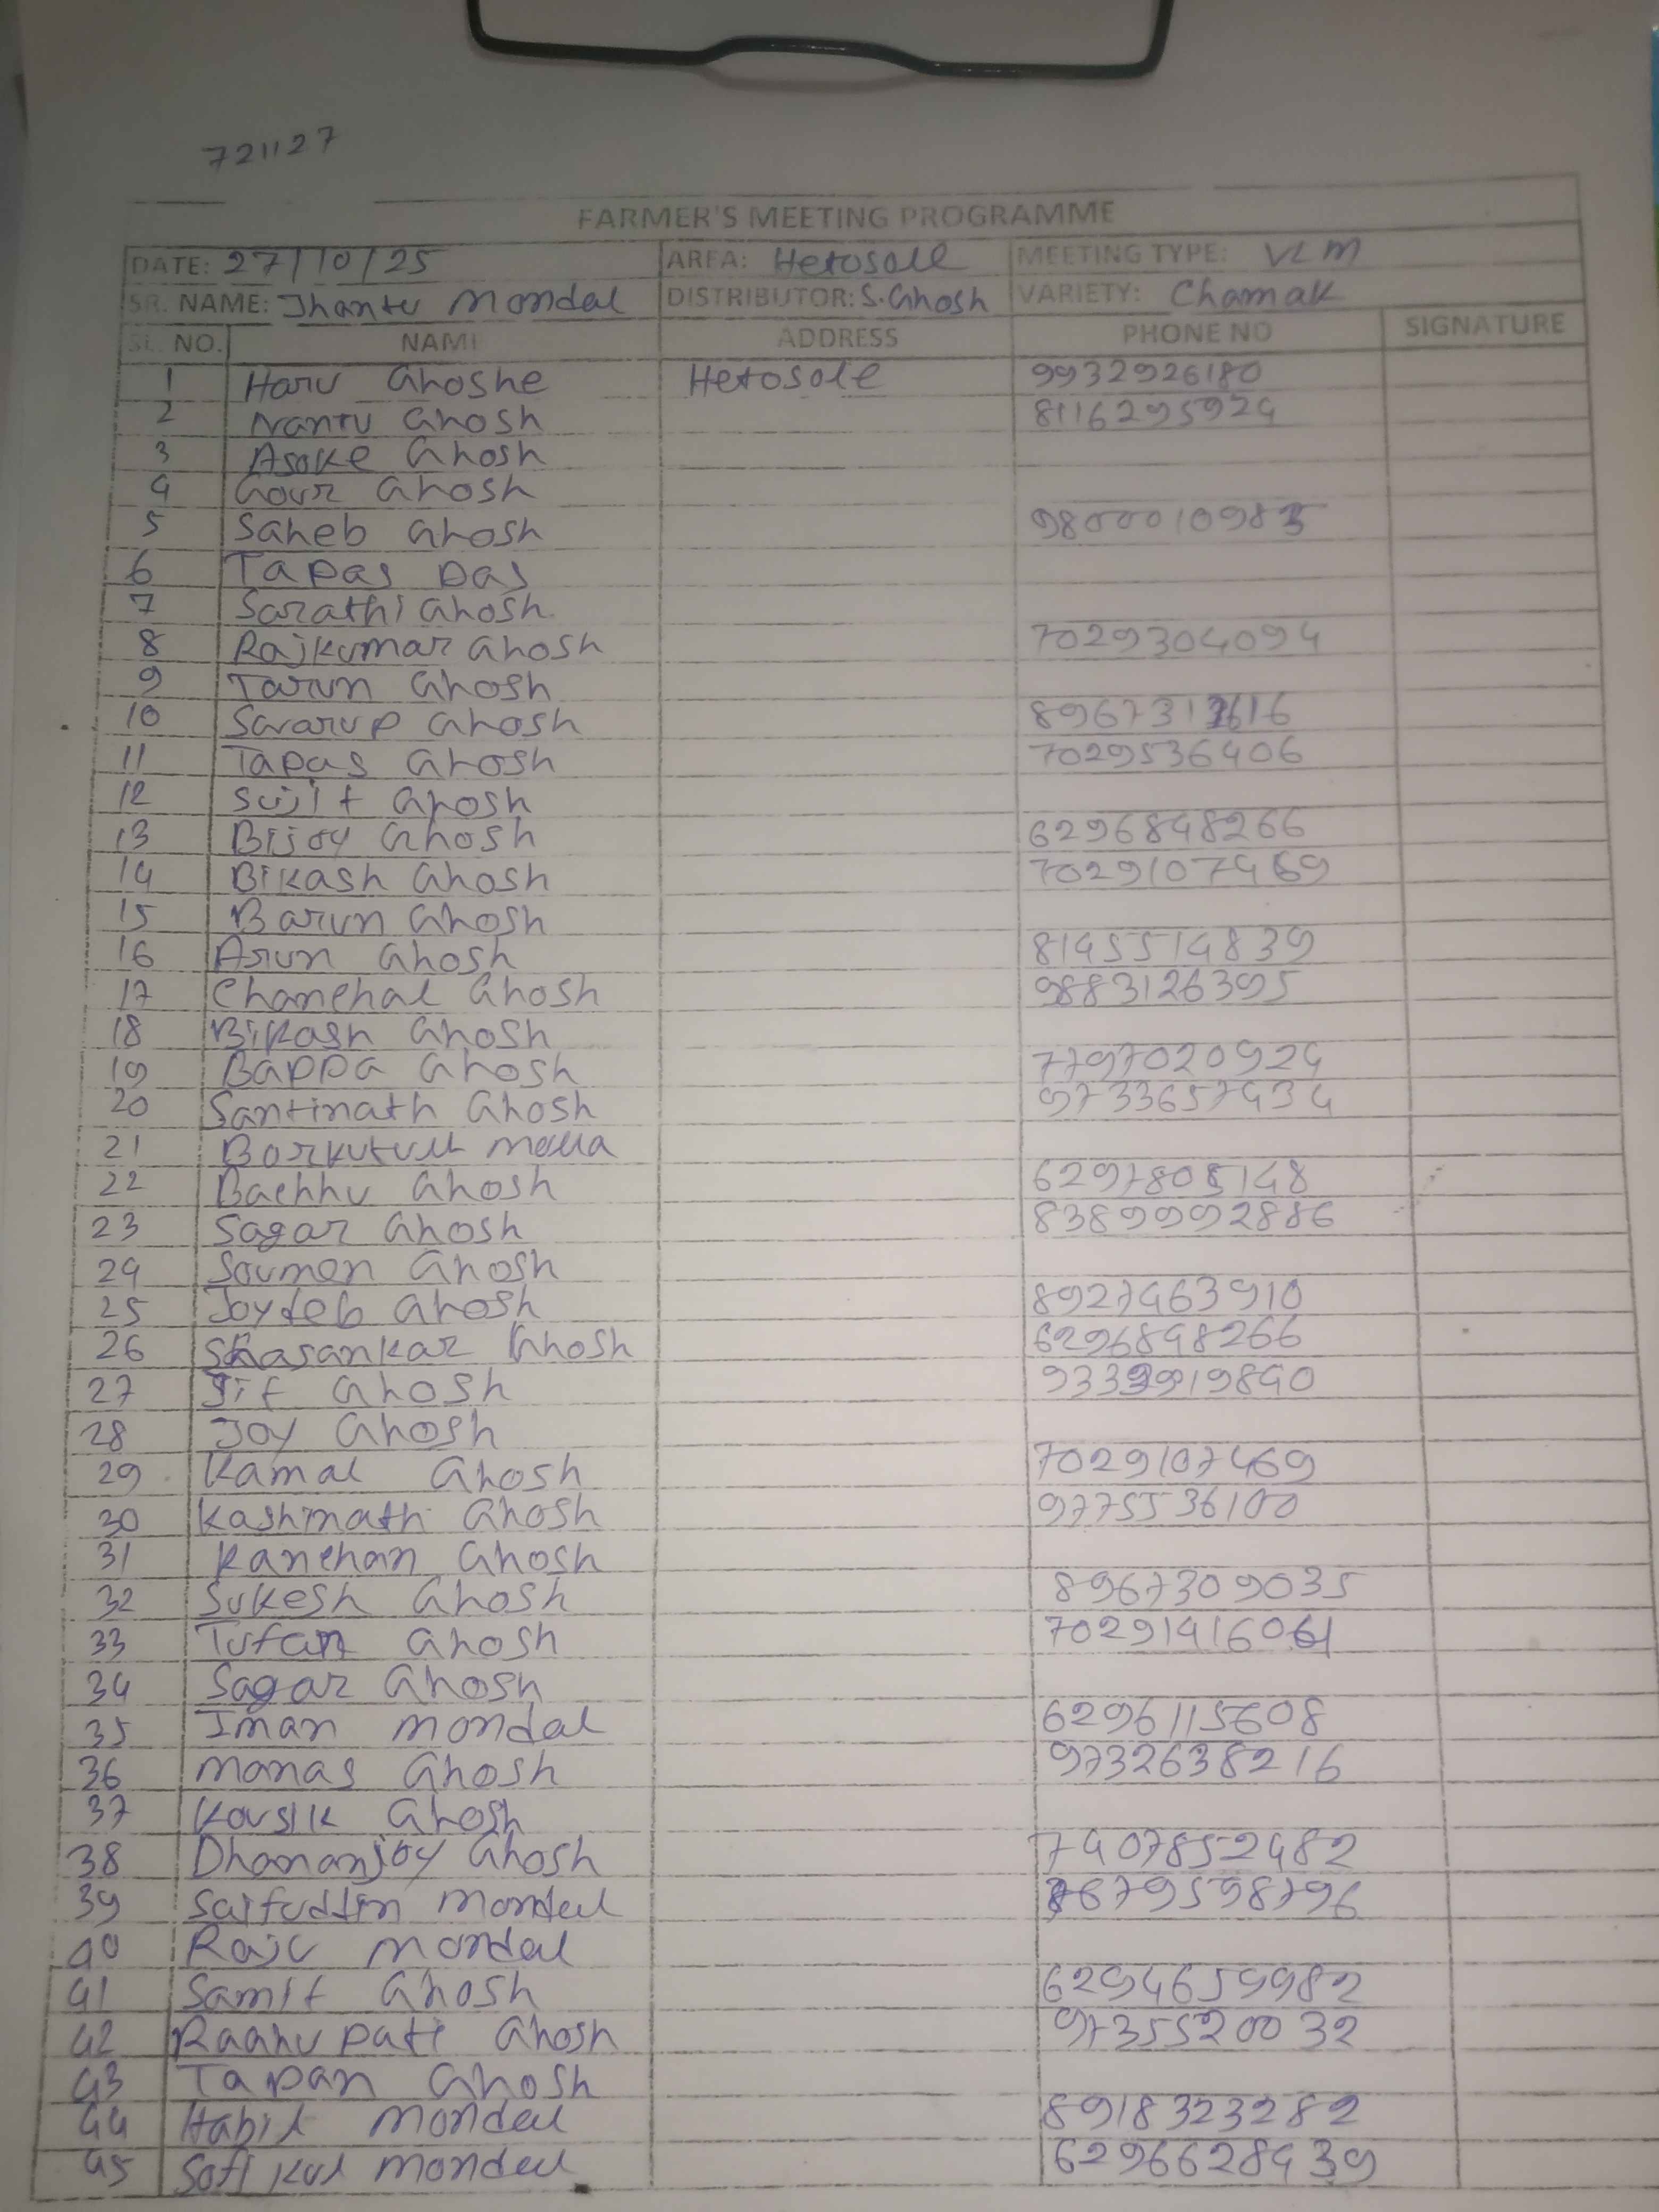 721127
FARMER'S MEETING PROGRAMME
DATE: 27/10/25 AREA: Hetosole MEETING TYPE: VLM
SR. NAME: Jhantu Mondal DISTRIBUTOR: S. Ghosh VARIETY: Chamak
SL. NO. NAME ADDRESS PHONE NO SIGNATURE
1 Haru Ghoshe Hetosole 9932926180
2 Nantu Ghosh 8116295924
3 Asoke Ghosh
4 Gour Ghosh
5 Saheb Ghosh 9800010983
6 Tapas Das
7 Sarathi Ghosh
8 Rajkumar Ghosh 7029304094
9 Tarun Ghosh
10 Swarup Ghosh
11 Tapas Ghosh 7029536406
12 Sujit Ghosh
13 Bijoy Ghosh 6296848266
14 Bikash Ghosh 7029107469
15 Barun Ghosh
16 Arun Ghosh 8145514839
17 Chanchal Ghosh 9883126395
18 Bikash Ghosh
19 Bappa Ghosh 7797020924
20 Santinath Ghosh 9733657434
21 Barkutull Molla
22 Bachhu Ghosh 6297808148
23 Sagar Ghosh 8389992886
24 Soumen Ghosh
25 Joydeb Ghosh 8927463910
26 Shasankar Ghosh 6296898266
27 Jit Ghosh
28 Joy Ghosh
29 Kamal Ghosh 7029107469
30 Kashinath Ghosh 9775536100
31 Kanchan Ghosh
32 Sukesh Ghosh 8967309035
33 Tufan Ghosh
34 Sagar Ghosh
35 Iman Mondal 6296115608
36 Manas Ghosh 9732638216
37 Kousik Ghosh
38 Dhananjoy Ghosh 7407852482
39 Saifuddin Mondal
40 Raju Mondal
41 Samit Ghosh 6294659982
42 Raghupati Ghosh 9735520032
43 Tapan Ghosh
44 Habil Mondal 8918323282
45 Sofikul Mondal 6296628439